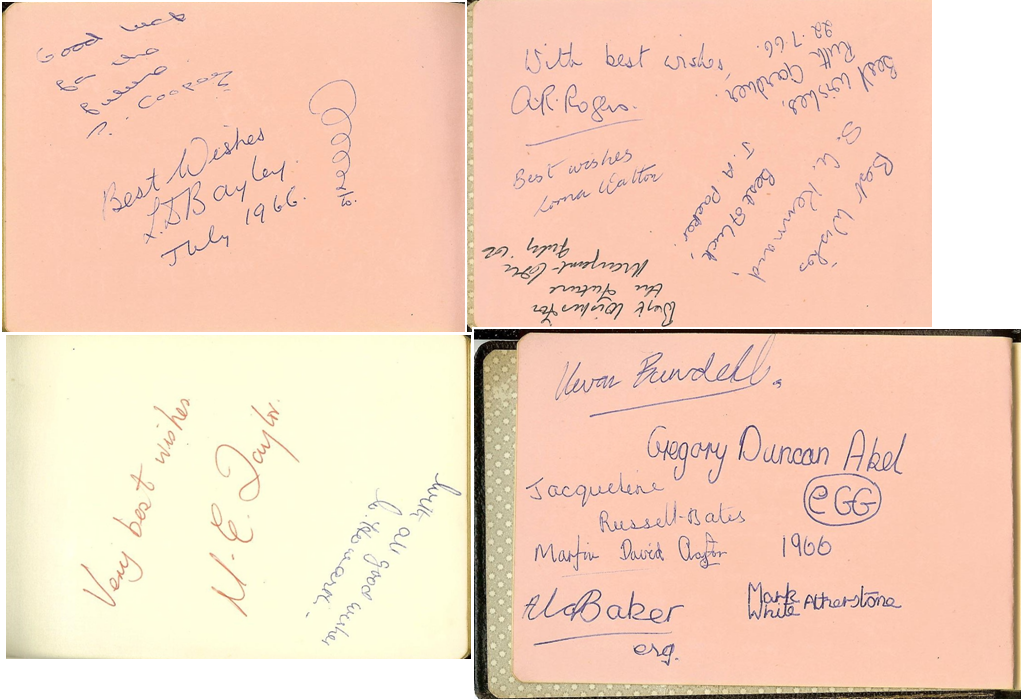 Good luck
for the
future
Best Wishes
L.D Bayley.
July 1966.
With best wishes,
A.R. Rogers.
Best wishes
Lorna Walton
Best wishes,
Ruth Gardner.
22.7.66.
Best Wishes
Best of luck,
J. A
Best Wishes for
the future
Margaret
July
Very best wishes
M. E. Taylor.
With all good wishes
Bundell.
Gregory Duncan Akel
eGG
Jacqueline
Russell-Bates
Martin David
1966
Baker
esq.
Mark
White Atherstone